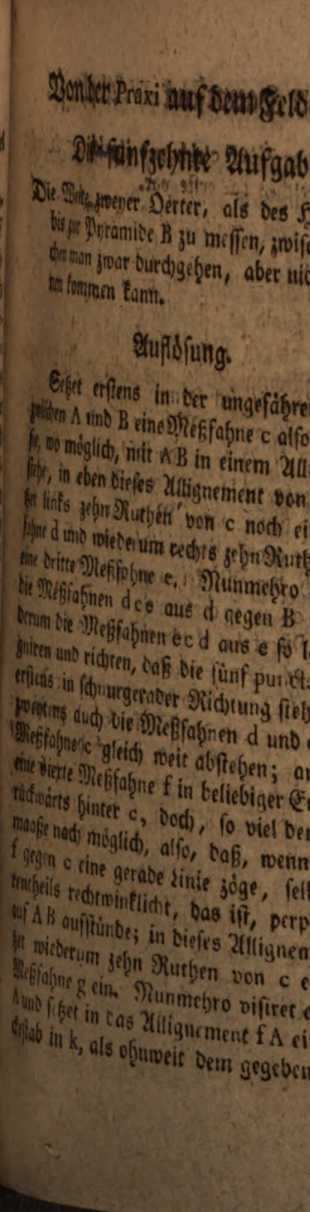 Von der Praxi auf dem Feld
Die fünfzehnte Aufgab
Die Weite zweyer Oerter, als des H
bis zur Pyramide B zu messen, zwisc
chen man zwar durchgehen, aber nic
kommen kann.
Auflösung.
Setzet erstens in der ungefähre
zwischen A und B eine Meßfahne c also
sie, wo möglich, mit A B in einem Alli
stehe, in eben dieses Allignement von
ter links zehn Ruthen von c noch ei
fahne d und wiederum rechts zehn Ruth
eine dritte Meßfahne e. Nunmehro
die Meßfahnen d c e aus d gegen B
derum die Meßfahnen e c d aus e so l
und richten, daß die fünf punkt
erstens in schnurgerader Richtung steh
zweytens auch die Meßfahnen d und e
Meßfahne c gleich weit abstehen; a
eine vierte Meßfahne f in beliebiger E
rückwärts hinter c, doch, so viel de
maaße nach möglich, also, daß, wenn
f gegen c eine gerade Linie zöge, sel
tentheils rechtwinklicht, das ist, perp
auf A B aufstünde; in dieses Allignem
wiederum zehn Ruthen von c e
Meßfahne g ein. Nunmehro visiret
A und setzet in das Allignement f A ei
in k, als ohnweit dem gegeben